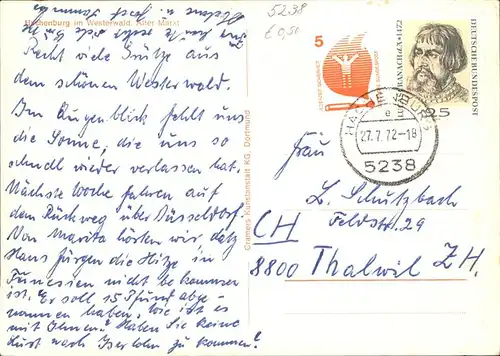 Hachenburg im Westerwald. Alter Markt
Recht viele Grüße aus
dem schönen Westerwald.
Im Augenblick fehlt uns
die Sonne, die uns so
schnell wieder verlassen hat.
Nächste Woche fahren auf
dem Rückweg über Düsseldorf.
Von Marita hörten wir, daß
Hans Jürgen die Hitze in
Tunesien nicht bekommen
ist. Er soll 15 Pfund abge-
nommen haben. Wie ist es
mit Ohnen? Haben Sie keine
Lust nach Iserlohn zu kommen!
Cramers Kunstanstalt KG, Dortmund
5238
€ 0,50
5
JEDERZEIT SICHERHEIT
DEUTSCHE BUNDESPOST
1472
25
DEUTSCHE BUNDESPOST
HACHENBURG
e
27.7.72-18
5238
Frau
L. Schutzbach
Feldstr. 29
CH
8800 Thalwil ZH.